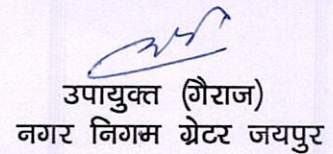 उपायुक्त (गैराज)
नगर निगम ग्रेटर जयपुर